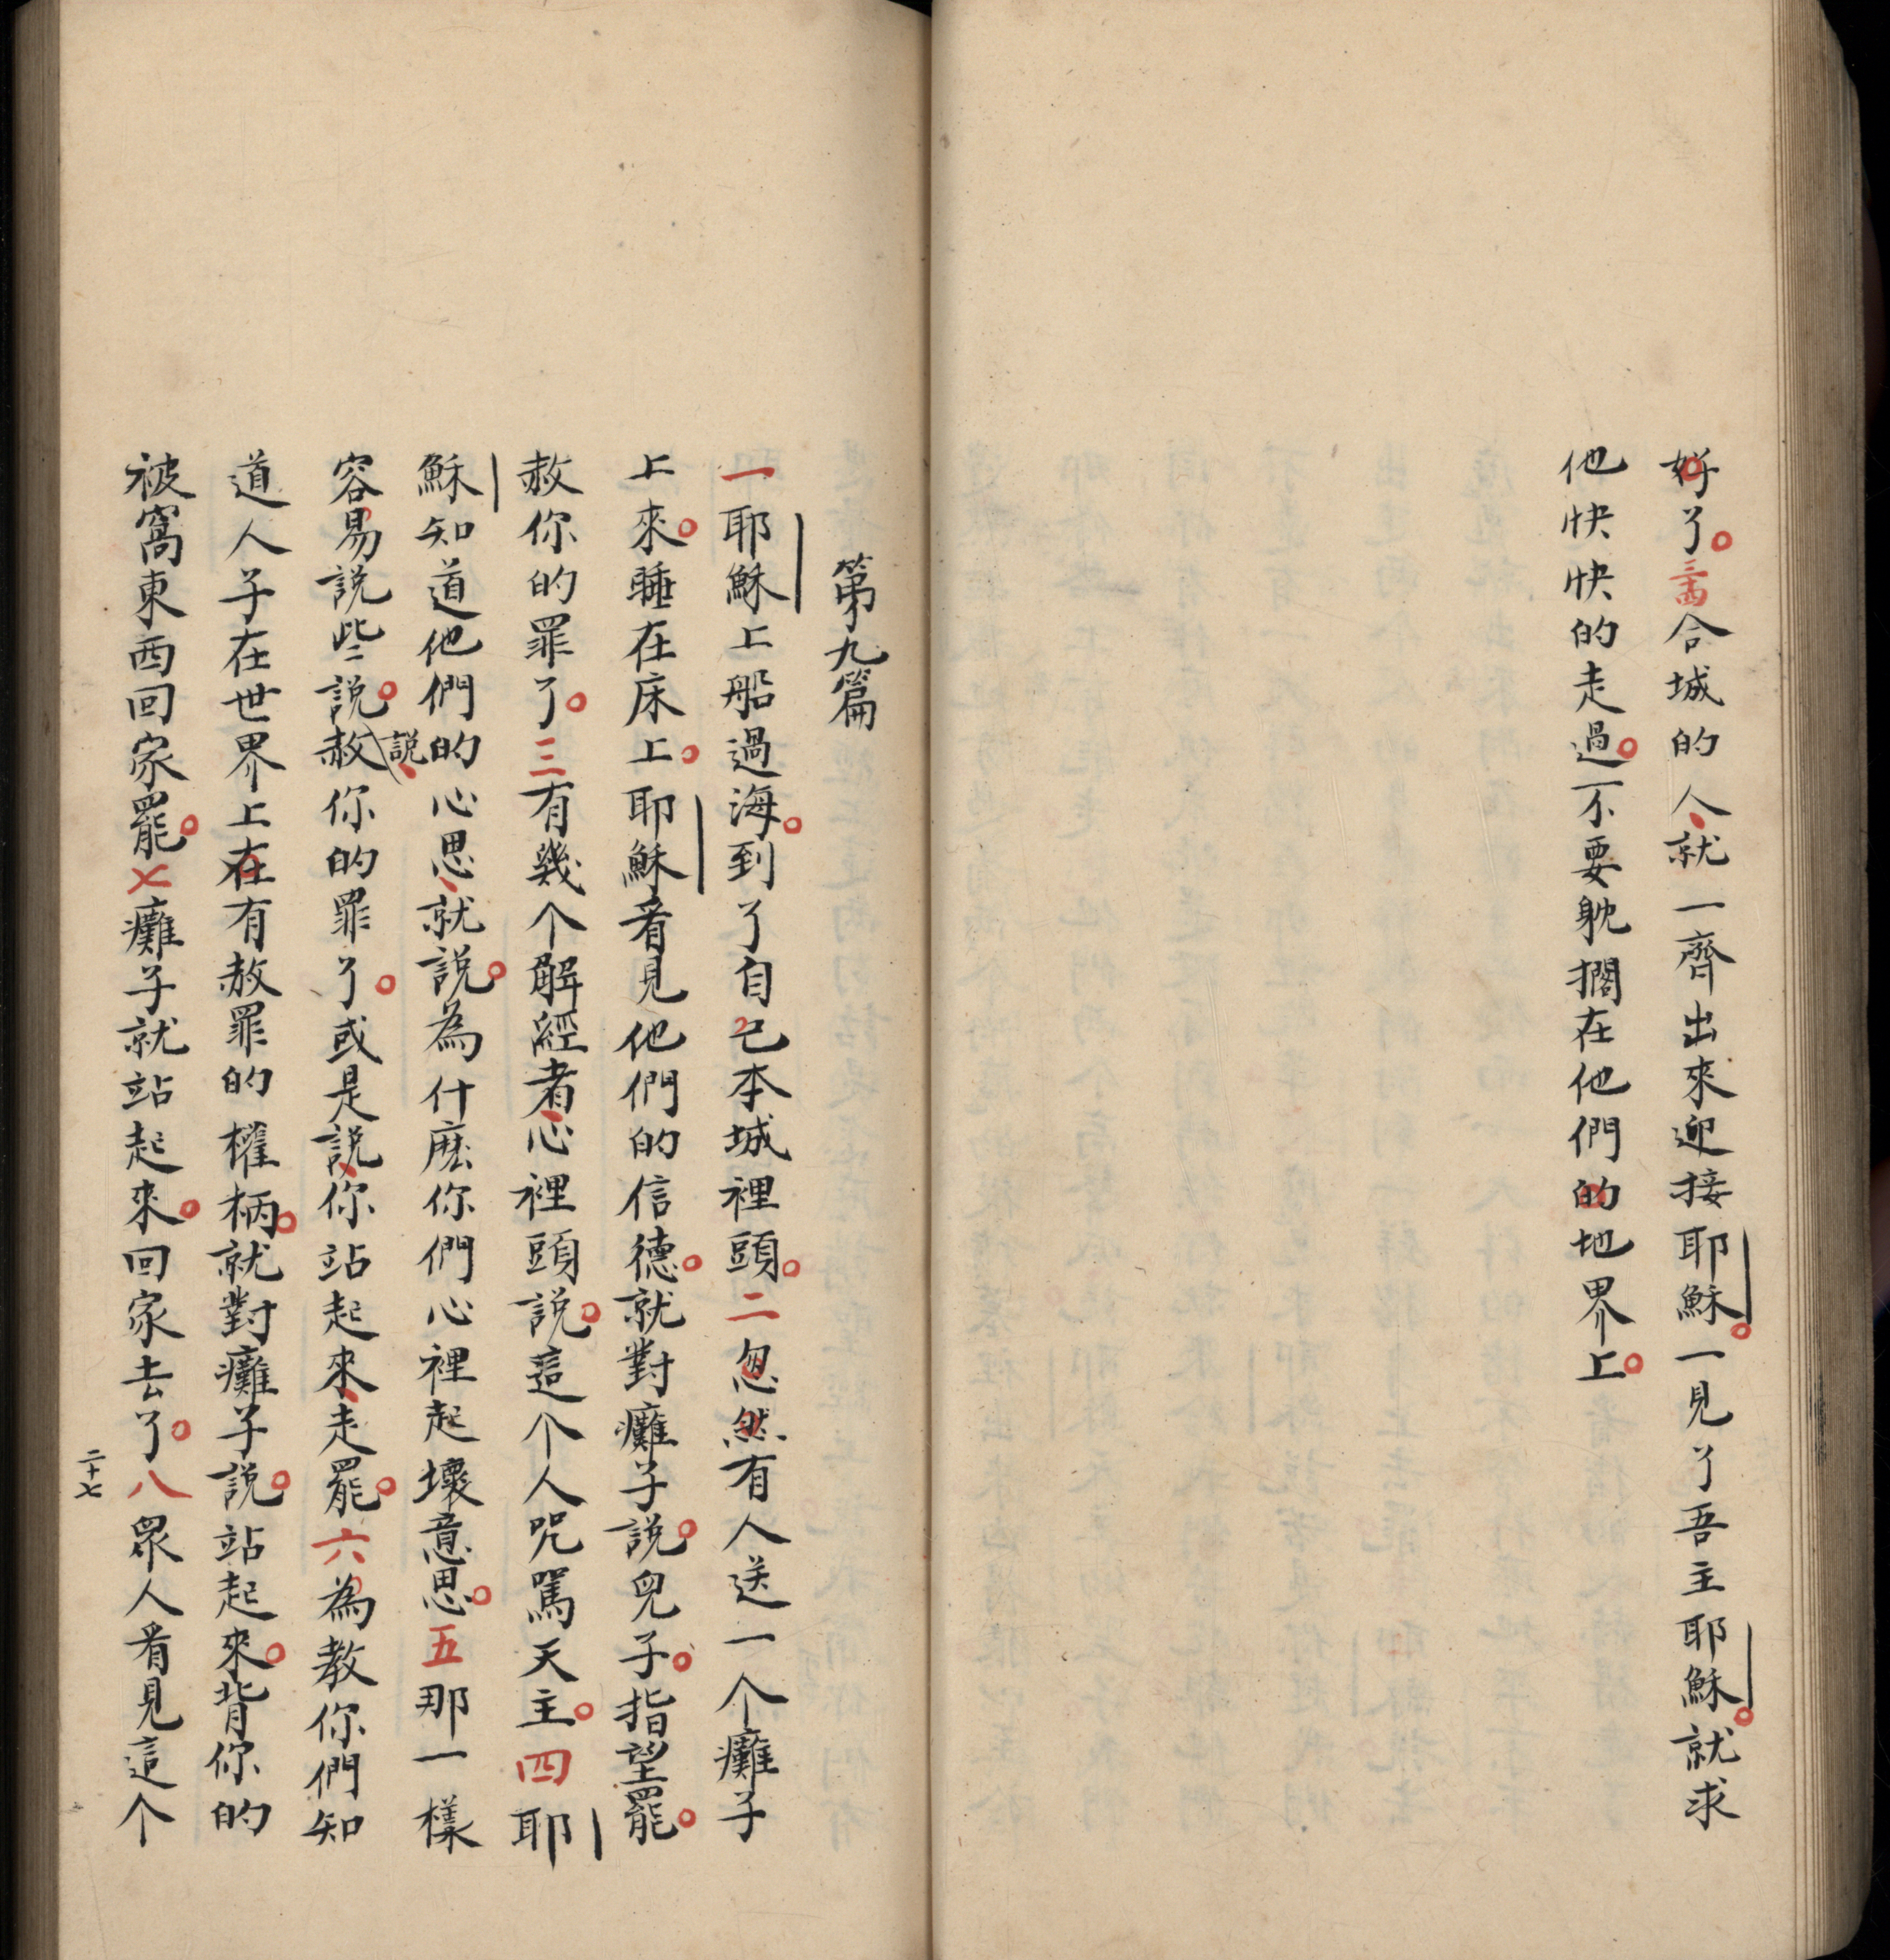 好了。三四合城的人、就一齊出來迎接耶穌。一見了吾主耶穌。就求
他快快的走過。不要躭擱在他們的地界上。
第九篇
一耶穌上船過海。到了自己本城裡頭。二忽然有人送一个癱子
上來。睡在床上。耶穌看見他們的信德。就對癱子說。兒子。指望罷。
赦你的罪了。三有幾个解經者、心裡頭說。這个人咒罵天主。四耶
穌知道他們的心思、就說。為什麽你們心裡起壞意思。五那一樣
容易說些。說說、赦你的罪了。或是說、你站起來、走罷。六為教你們知
道人子在世界上在有赦罪的權柄。就對癱子說。站起來。背你的
被窩東西回家罷。七癱子就站起來。回家去了。八眾人看見這个
二十七